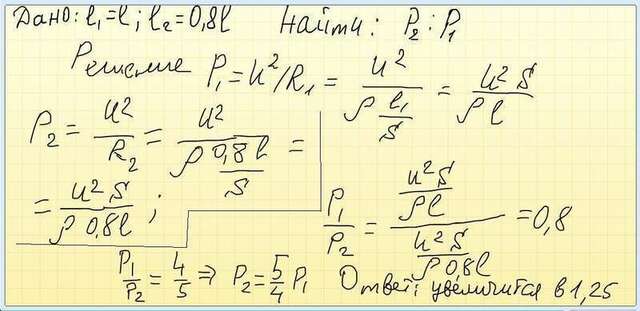 Дано: l₁=l; l₂=0,8l Найти: P₂:P₁
Решение P₁=U²/R₁ = U²/(ρ l₁/S) = U²S/ρl
P₂ = U²/R₂ = U²/(ρ 0,8l/S) =
= U²S/ρ 0,8l ;
P₁/P₂ = (U²S/ρl)/(U²S/ρ 0,8l) = 0,8
P₁/P₂ = 4/5 ⇒ P₂ = 5/4 P₁ Ответ: увеличится в 1,25